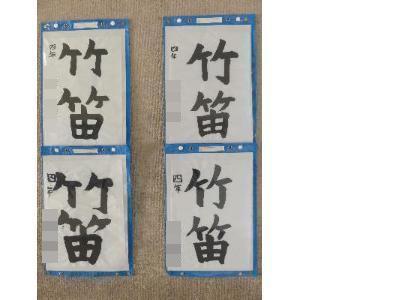 竹笛
四年
竹笛
四年
竹笛
四年
竹笛
四年